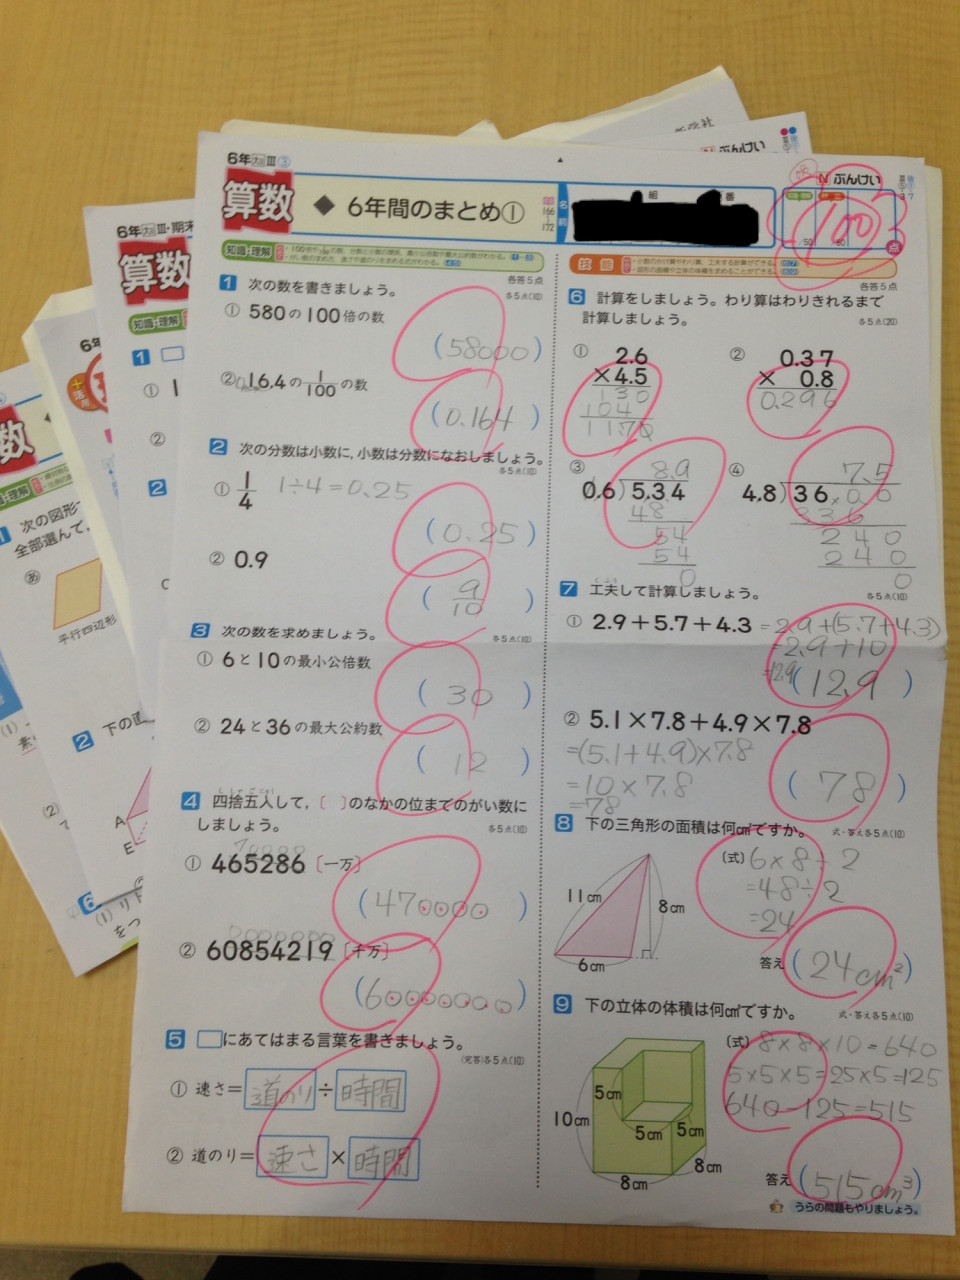 6年 大日 Ⅲ ③
算数
◆ 6年間のまとめ①
166
172
名前
組
番
ぶんけい
100
点
/50
知識・理解
各答5点
1 次の数を書きましょう。
各5点(10)
① 580の100倍の数
(58000)
② 16.4の1/100の数
(0.164)
2 次の分数は小数に,小数は分数になおしましょう。
各5点(10)
① 1/4 1÷4=0.25
(0.25)
② 0.9
(9/10)
3 次の数を求めましょう。
各5点(10)
① 6と10の最小公倍数
(30)
② 24と36の最大公約数
(12)
4 四捨五入して,〔 〕のなかの位までのがい数に
しましょう。
各5点(10)
① 465286〔一万〕
(470000)
② 60854219〔千万〕
(60000000)
5 □にあてはまる言葉を書きましょう。
(完答)各5点(10)
① 速さ=道のり÷時間
② 道のり=速さ×時間
技能
各答5点
6 計算をしましょう。わり算はわりきれるまで
計算しましょう。
各5点(20)
① 2.6
×4.5
130
104
11.70
② 0.37
× 0.8
0.296
③ 8.9
0.6)5.34
48
54
54
0
④ 7.5
4.8)36.00
336
240
240
0
7 工夫して計算しましょう。
各5点(10)
① 2.9+5.7+4.3 =2.9+(5.7+4.3)
=2.9+10
=12.9
(12.9)
② 5.1×7.8+4.9×7.8
=(5.1+4.9)×7.8
=10×7.8
=78
(78)
8 下の三角形の面積は何㎠ですか。
式・答え各5点(10)
11cm
8cm
6cm
(式)6×8÷2
=48÷2
=24
答え(24cm²)
9 下の立体の体積は何㎤ですか。
式・答え各5点(10)
5cm
10cm
5cm
5cm
8cm
8cm
(式)8×8×10=640
5×5×5=25×5=125
640-125=515
答え(515cm³)
うらの問題もやりましょう。
6年 大日 Ⅲ・期末
算数
知識・理解
1
①
②
2
6年
数
知識・理解
次の図形
全部選んで、
あ
平行四辺形
2 下の直
A
E
(1)
(2)
6
ぶんけい